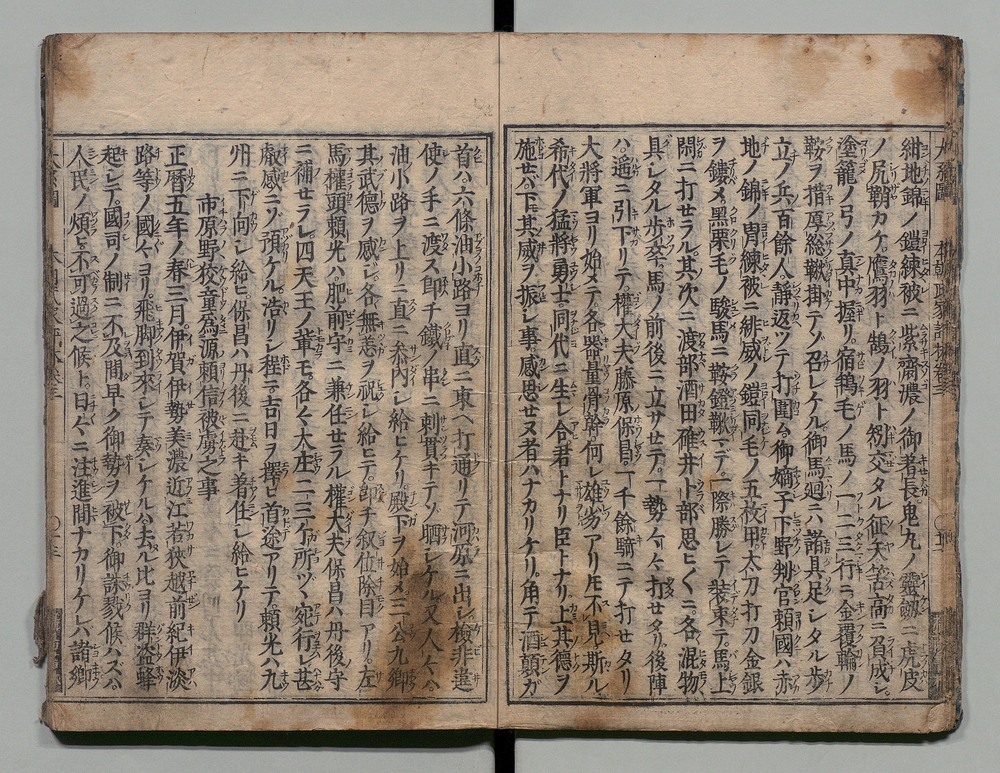 紺地錦ノ鎧練被ニ紫齋濃ノ御着長鬼九ノ靈劔ニ虎皮
ノ尻鞘カケ鷹羽ト鵠ノ羽ト刎交タル征矢筈高ニ負成シ
塗籠ノ弓ノ真中握リ宿鴾毛ノ馬ノ一二三行ニ金覆輪ノ
鞍ヲ措厚総鞦掛テソ召レケル御馬廻ニハ諸具足シタル歩
立ノ兵百餘人静返ツテ打圍ム御嫡子下野判官頼國ハ赤
地ノ錦ノ冑練被ニ緋威ノ鎧同毛ノ五枚甲太刀打刀金銀
ヲ鏤メ黒栗毛ノ駿馬ニ鞍鐙鞦マデ一際勝レテ装束テ馬上
閑ニ打セラル其次ニ渡部酒田碓井卜部思ヒ〱ニ各混物
具シタル歩卒馬ノ前後ニ立サセテ一勢々々ニ打セタリ後陣
ハ遥ニ引下リテ權大夫藤原保昌一千餘騎ニテ打セタリ
大將軍ヨリ始メテ各器量骨幹何レ雄劣アリ圧不見斯ル
希代ノ猛將勇士同代ニ生レ合君トナリ臣トナリ上其德ヲ
施セハ下其威ヲ振シ事感思セヌ者ハナカリケリ角テ酒顛ガ
首ハ六條油小路ヨリ直ニ東ヘ打通リテ河原ニ出シ檢非違
使ノ手ニ渡ス即チ鐵ノ串ニ刺貫キテソ晒シケル又人々ハ
油小路ヲ上リニ直ニ叅内シ給ヒケリ殿下ヲ始メ三公九卿
其武德ヲ感シ各無恙ヲ祝シ給ヒテ即チ叙位除目アリ左
馬權頭頼光ハ肥前守ニ兼任セラル權大夫保昌ハ丹後守
ニ補セラレ四天王ノ輩モ各々大庄二三ケ所ツヽ宛行レ甚
叡感ニソ預ケル浩リシ程ニ吉日ヲ擇ヒ首途アリテ頼光ハ九
州ニ下向シ給ヒ保昌ハ丹後ニ赴キ着任シ給ヒケリ
市原野校童爲源頼信被虜之事
正暦五年ノ春三月伊賀伊勢美濃近江若狹越前紀伊淡
路等ノ國々ヨリ飛脚到來シテ奏シケルハ去ル比ヨリ群盗蜂
起シテ國司ノ制ニ不及間早ク御勢ヲ被下御誅戮候ハズハ
人民ノ煩ヒ不可過之候ト日々ニ注進間ナカリケレハ諸卿